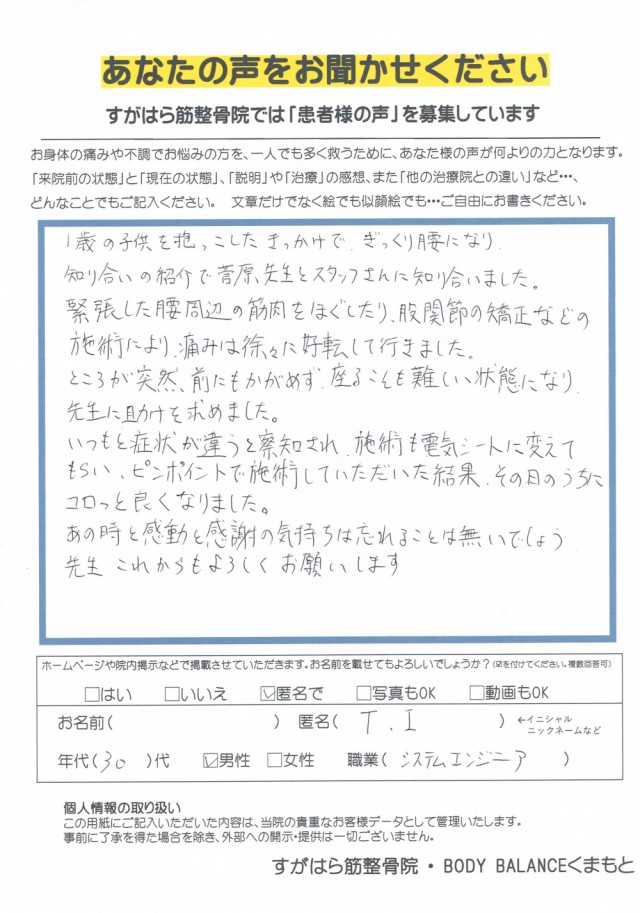 あなたの声をお聞かせください
すがはら筋整骨院では「患者様の声」を募集しています
お身体の痛みや不調でお悩みの方を、一人でも多く救うために、あなた様の声が何よりの力となります。
「来院前の状態」と「現在の状態」、「説明」や「治療」の感想、また「他の治療院との違い」など…、
どんなことでもご記入ください。 文章だけでなく絵でも似顔絵でも…ご自由にお書きください。
1歳の子供を抱っこしたきっかけで、ぎっくり腰になり、
知り合いの紹介で菅原先生とスタッフさんに知り合いました。
緊張した腰周辺の筋肉をほぐしたり、股関節の矯正などの
施術により、痛みは徐々に好転して行きました。
ところが突然、前にもかがめず、座ることも難しい状態になり、
先生に助けを求めました。
いつもと症状が違うと察知され、施術も電気シートに変えて
もらい、ピンポイントで施術していただいた結果、その日のうちに
コロっと良くなりました。
あの時と感動と感謝の気持ちは忘れることは無いでしょう
先生 これからもよろしくお願いします
ホームページや院内掲示などで掲載させていただきます。お名前を載せてもよろしいでしょうか?(☑を付けてください。複数回答可)
□はい □いいえ ☑匿名で □写真もOK □動画もOK
お名前( ) 匿名( T.I ) ←イニシャル
ニックネームなど
年代(30)代 ☑男性 □女性 職業( システムエンジニア )
個人情報の取り扱い
この用紙にご記入いただいた内容は、当院の貴重なお客様データとして管理いたします。
事前に了承を得た場合を除き、外部への開示・提供は一切ございません。
すがはら筋整骨院・BODY BALANCEくまもと